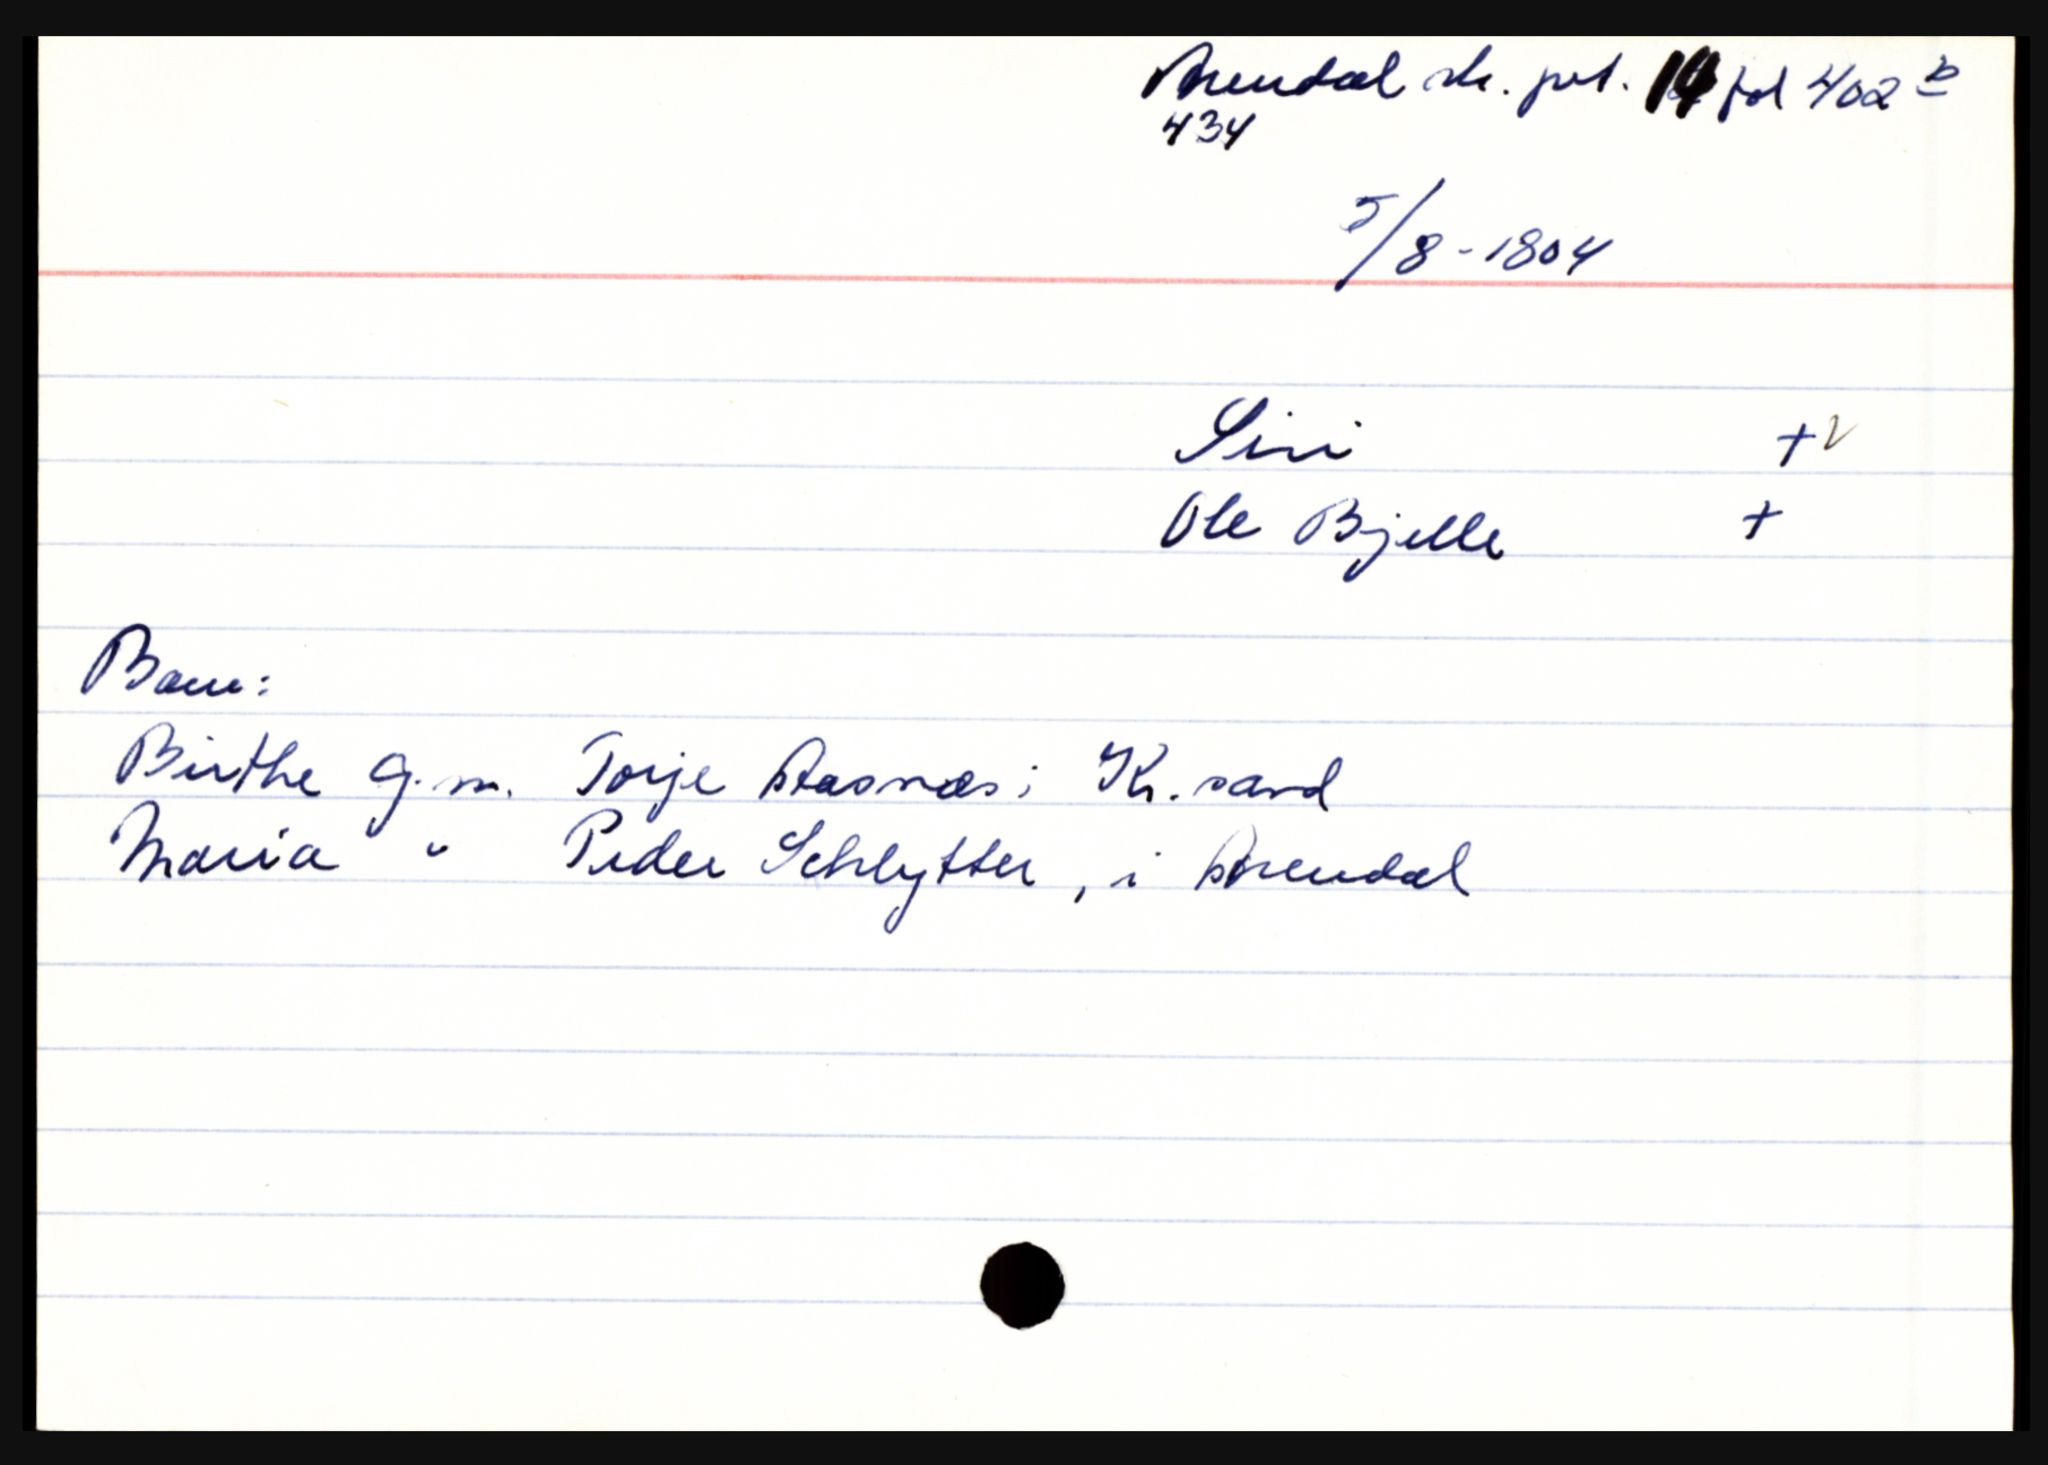 Arendal sk. prt. 14 fol 402 b
434
5/8-1804
Siri + v
Ole Bjelle +
Barn:
Birthe g.m. Torje Aasnæs i Kr.sand
Maria " Peder Schlytter, i Arendal